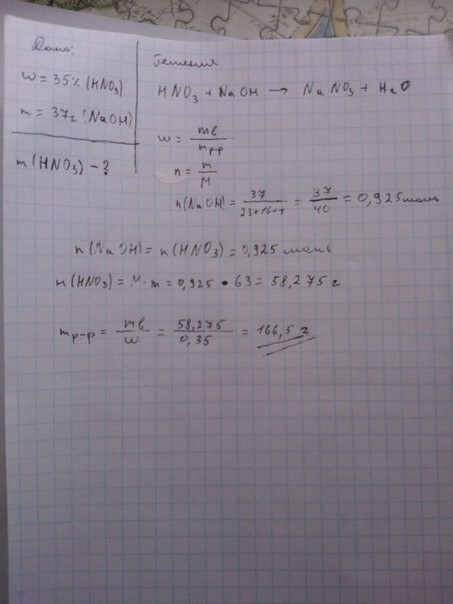 Дано:
w = 35% (HNO3)
m = 37г (NaOH)
m (HNO3) - ?
Решения
HNO3 + NaOH → NaNO3 + H2O
w = mв / mр-р
n = m / M
n(NaOH) = 37 / 23+16+1 = 37 / 40 = 0,925 моль
n(NaOH) = n(HNO3) = 0,925 моль
m(HNO3) = M · m = 0,925 • 63 = 58,275 г
mр-р = mв / w = 58,275 / 0,35 = 166,5 г